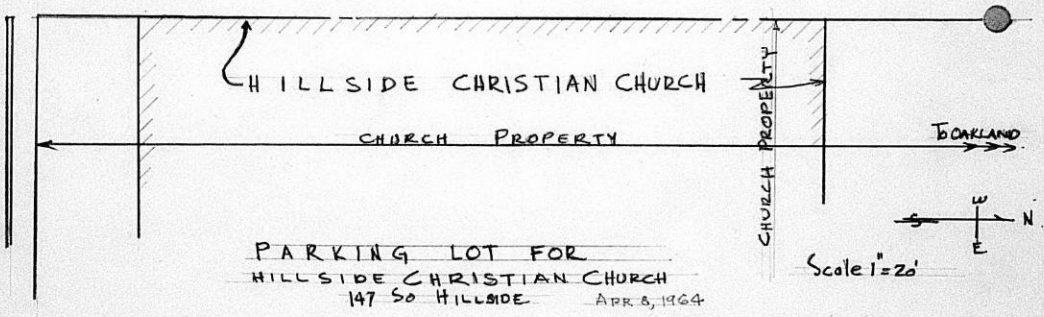 HILLSIDE CHRISTIAN CHURCH
CHURCH PROPERTY
CHURCH PROPERTY
TO OAKLAND
W
S N
E
PARKING LOT FOR
HILLSIDE CHRISTIAN CHURCH
147 So HILLSIDE APR 8, 1964
Scale 1"=20'